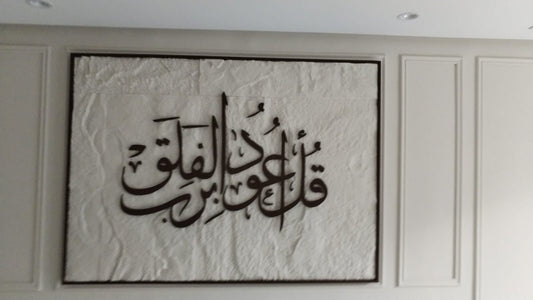 قُلْ أَعُوذُ بِرَبِّ الفَلَقِ